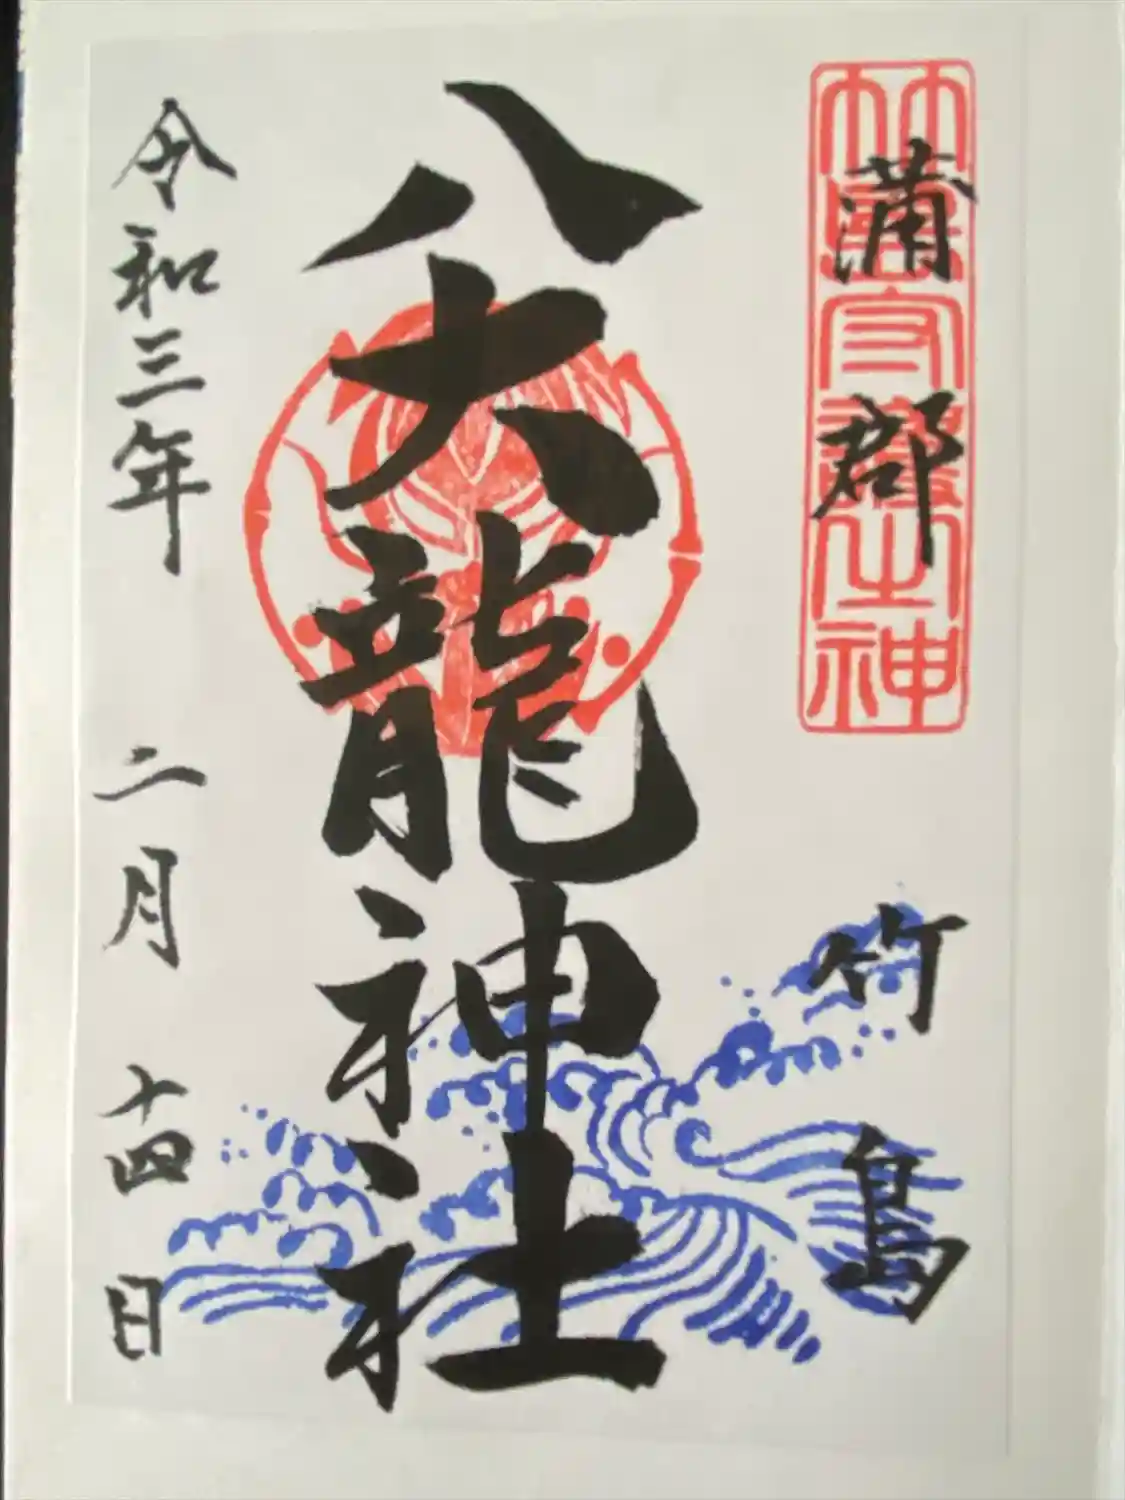 蒲郡
竹島
八大龍神社
令和三年 二月 十四日